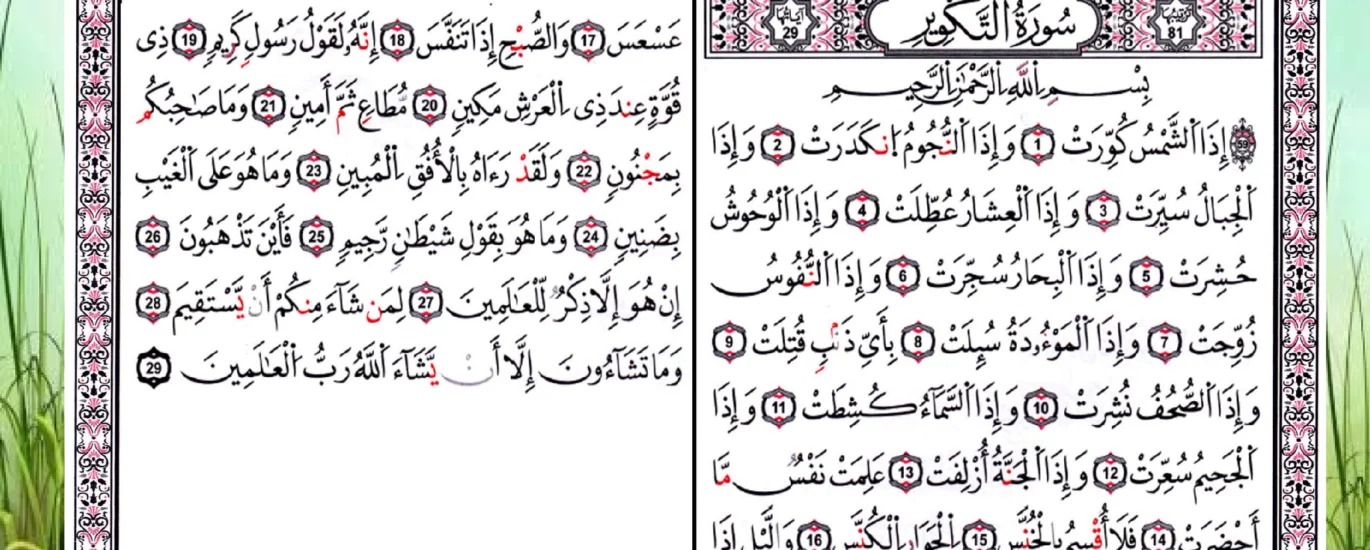 سُورَةُ التَّكْوِيرِ
ترتيبها 81
آياتها 29
بِسْمِ اِ۬للَّهِ اِ۬لرَّحْمَٰنِ اِ۬لرَّحِيمِ
إِذَا اَ۬لشَّمْسُ كُوِّرَتْ 1 وَإِذَا اَ۬لنُّجُومُ اُ۪نكَدَرَتْ 2 وَإِذَا
اَ۬لْجِبَالُ سُيِّرَتْ 3 وَإِذَا اَ۬لْعِشَارُ عُطِّلَتْ 4 وَإِذَا اَ۬لْوُحُوشُ
حُشِرَتْ 5 وَإِذَا اَ۬لْبِحَارُ سُجِّرَتْ 6 وَإِذَا اَ۬لنُّفُوسُ
زُوِّجَتْ 7 وَإِذَا اَ۬لْمَوْءُۥدَةُ سُئِلَتْ 8 بِأَيِّ ذَنۢبٖ قُتِلَتْ 9
وَإِذَا اَ۬لصُّحُفُ نُشِرَتْ 10 وَإِذَا اَ۬لسَّمَآءُ كُشِطَتْ 11 وَإِذَا
اَ۬لْجَحِيمُ سُعِّرَتْ 12 وَإِذَا اَ۬لْجَنَّةُ أُزْلِفَتْ 13 عَلِمَتْ نَفْسٞ مَّا
أَحْضَرَتْ 14 فَلَا أُقْسِمُ بِالْخُنَّسِ 15 اِ۬لْجَوَارِ اِ۬لْكُنَّسِ 16 وَالَّيْلِ إِذَا
عَسْعَسَ 17 وَالصُّبْحِ إِذَا تَنَفَّسَ 18 إِنَّهُۥ لَقَوْلُ رَسُولٖ كَرِيمٖ 19 ذِى
قُوَّةٍ عِندَ ذِى اِ۬لْعَرْشِ مَكِينٖ 20 مُّطَاعٖ ثَمَّ أَمِينٖ 21 وَمَا صَاحِبُكُم
بِمَجْنُونٖ 22 وَلَقَدْ رَءَاهُ بِالْأُفُقِ اِ۬لْمُبِينِ 23 وَمَا هُوَ عَلَى اَ۬لْغَيْبِ
بِضَنِينٖ 24 وَمَا هُوَ بِقَوْلِ شَيْطَٰنٖ رَّجِيمٖ 25 فَأَيْنَ تَذْهَبُونَ 26
إِنْ هُوَ إِلَّا ذِكْرٞ لِّلْعَٰلَمِينَ 27 لِمَن شَآءَ مِنكُمْ أَنْ يَّسْتَقِيمَ 28
وَمَا تَشَآءُونَ إِلَّا أَنْ يَّشَآءَ اَ۬للَّهُ رَبُّ اُ۬لْعَٰلَمِينَ 29